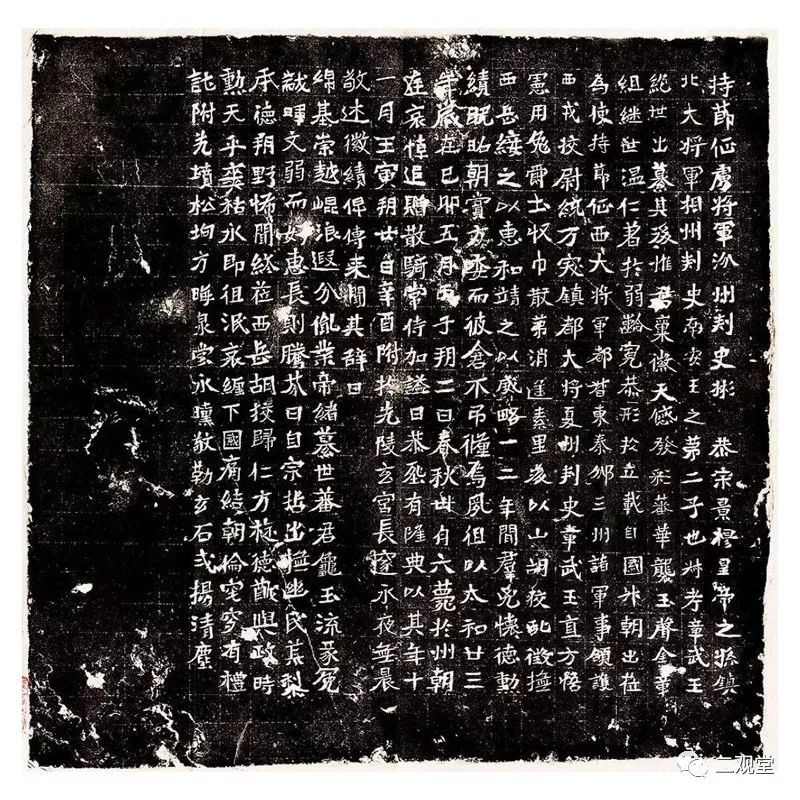 持節征虜將軍汾州刺史彬 恭宗景穆皇帝之孫鎮
北大將軍相州刺史南安王之第二子也叔考章武王
絕世出纂其後惟君稟徽天感發彩蕃華襲玉聲金章
組繼世溫仁著於弱齡寬恭形於立載自國升朝出莅
為使持節征西大將軍都督東秦邠三州諸軍事領護
西戎校尉統万突鎮都大將夏州刺史章武王直方悟
憲用免爵土收巾散第消遥素里後以山胡校亂徵撫
西岳綏之以惠和靖之以威略一二年間羣兇懷德勳
績既昭朝賞方委而彼倉不弔殲焉夙徂以太和廿三
年歲在己卯五月丙子朔二日春秋卅有六薨於州朝
廷哀悼追贈散騎常侍加謚曰恭丞有隆典以其年十
一月壬寅朔廿日辛酉附於先陵玄宮長邃永夜無晨
敬述徽績俾傳來聞其辭曰
綿基崇越崐浪遐分胤業帝緒纂世蕃君龜玉流彖冕
黻暉文弱而好惠長則騰芬曰自宗哲出撫幽民慕梨
承德朔野怖聞終莅西岳胡狡歸仁方旌德猷與政時
勳天乎爽祐永即徂泯哀纏下國痛結朝倫窀穸有禮
託附先墳松埛方晦泉堂永曛敬勒玄石式揚清塵
二观堂